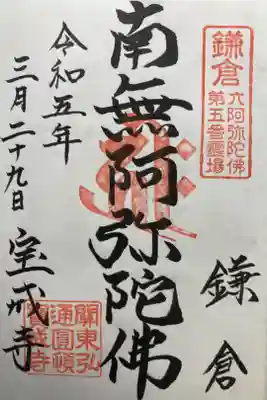 鎌倉
六阿弥陀佛
鎌倉
南無阿弥陀佛
令和五年
三月二十九日 宝戒寺
關東弘
通圓頓
寶戒寺